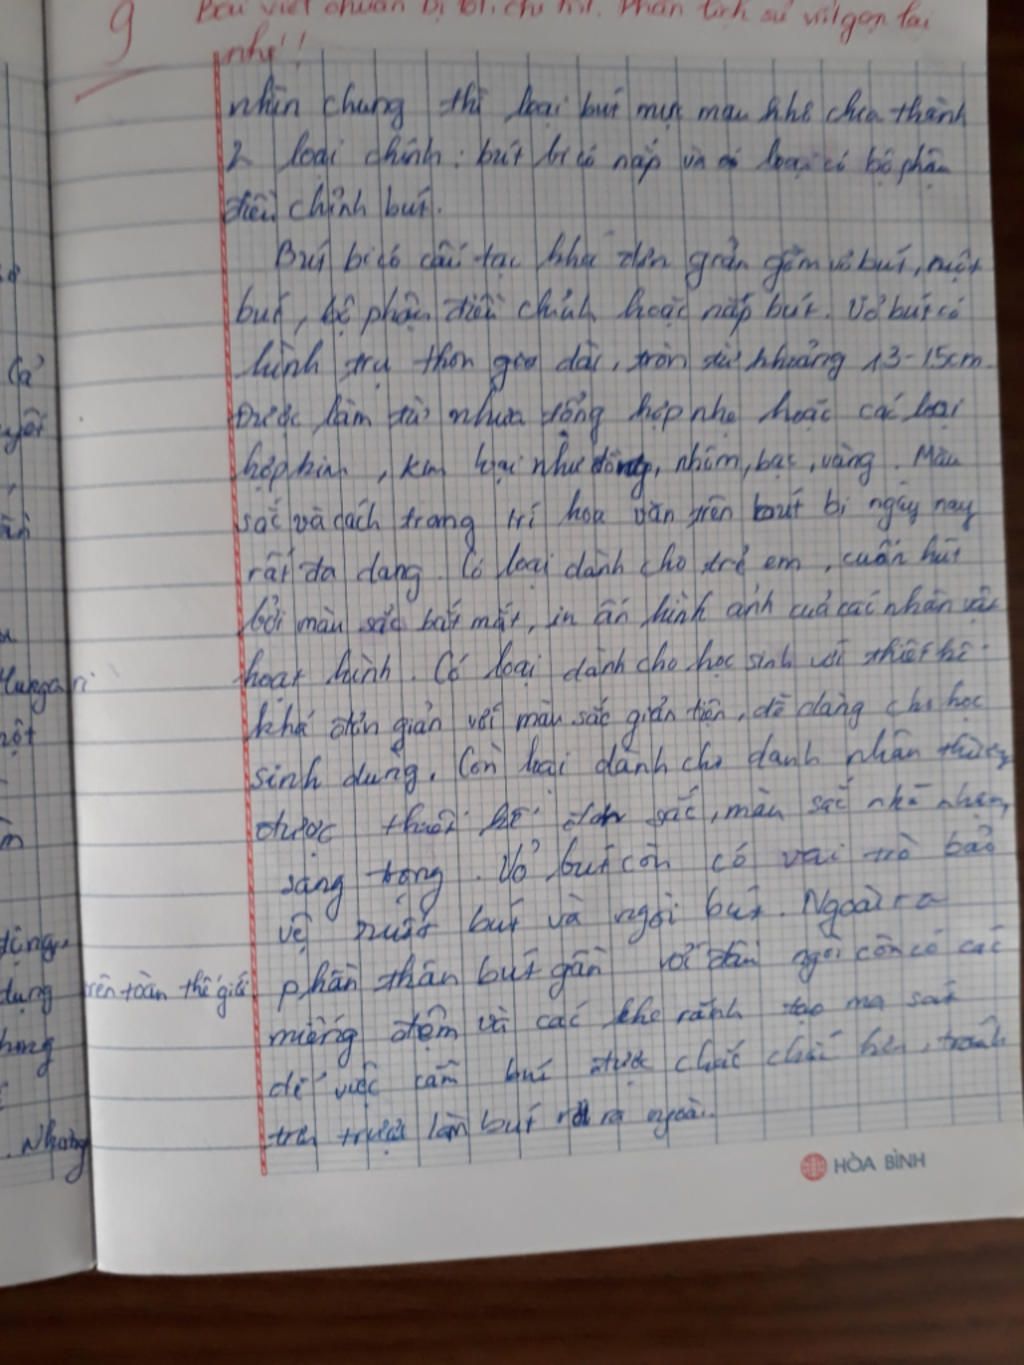 9
Bài viết chuẩn bị tốt, chi tiết. Phần lịch sử viết gọn lại
nhé!!
nhìn chung thì loại bút mực màu chia thành
2 loại chính: bút bi có nắp và loại có bộ phận
điều chỉnh bút.
Bút bi có cấu tạo khá đơn giản gồm vỏ bút, ruột
bút, bộ phận điều chỉnh hoặc nắp bút. Vỏ bút có
hình trụ thon dài, tròn khoảng 13-15cm
Được làm từ nhựa tổng hợp nhẹ hoặc các loại
hợp kim, kim loại như đồng, nhôm, bạc, vàng. Màu
sắc và cách trang trí hoa văn trên bút bi ngày nay
rất đa dạng. Có loại dành cho trẻ em, cuốn hút
bởi màu sắc bắt mắt, in ấn hình ảnh của các nhân vật
hoạt hình. Có loại dành cho học sinh với thiết kế
khá đơn giản với màu sắc giản tiện, dễ dàng cho học
sinh dùng. Còn loại dành cho danh nhân thường
được thiết kế đơn sắc, màu sắc nhã nhặn,
sang trọng. Vỏ bút còn có vai trò bảo
vệ ruột bút và ngòi bút. Ngoài ra
phần thân bút gần với đầu ngòi còn có các
miếng đệm và các khe rãnh tạo ma sát
để việc cầm bút được chắc chắn hơn, tránh
trơn trượt làm bút rơi ra ngoài.
trên toàn thế giới
Hungari
một
dụng
Nhưng
HÒA BÌNH